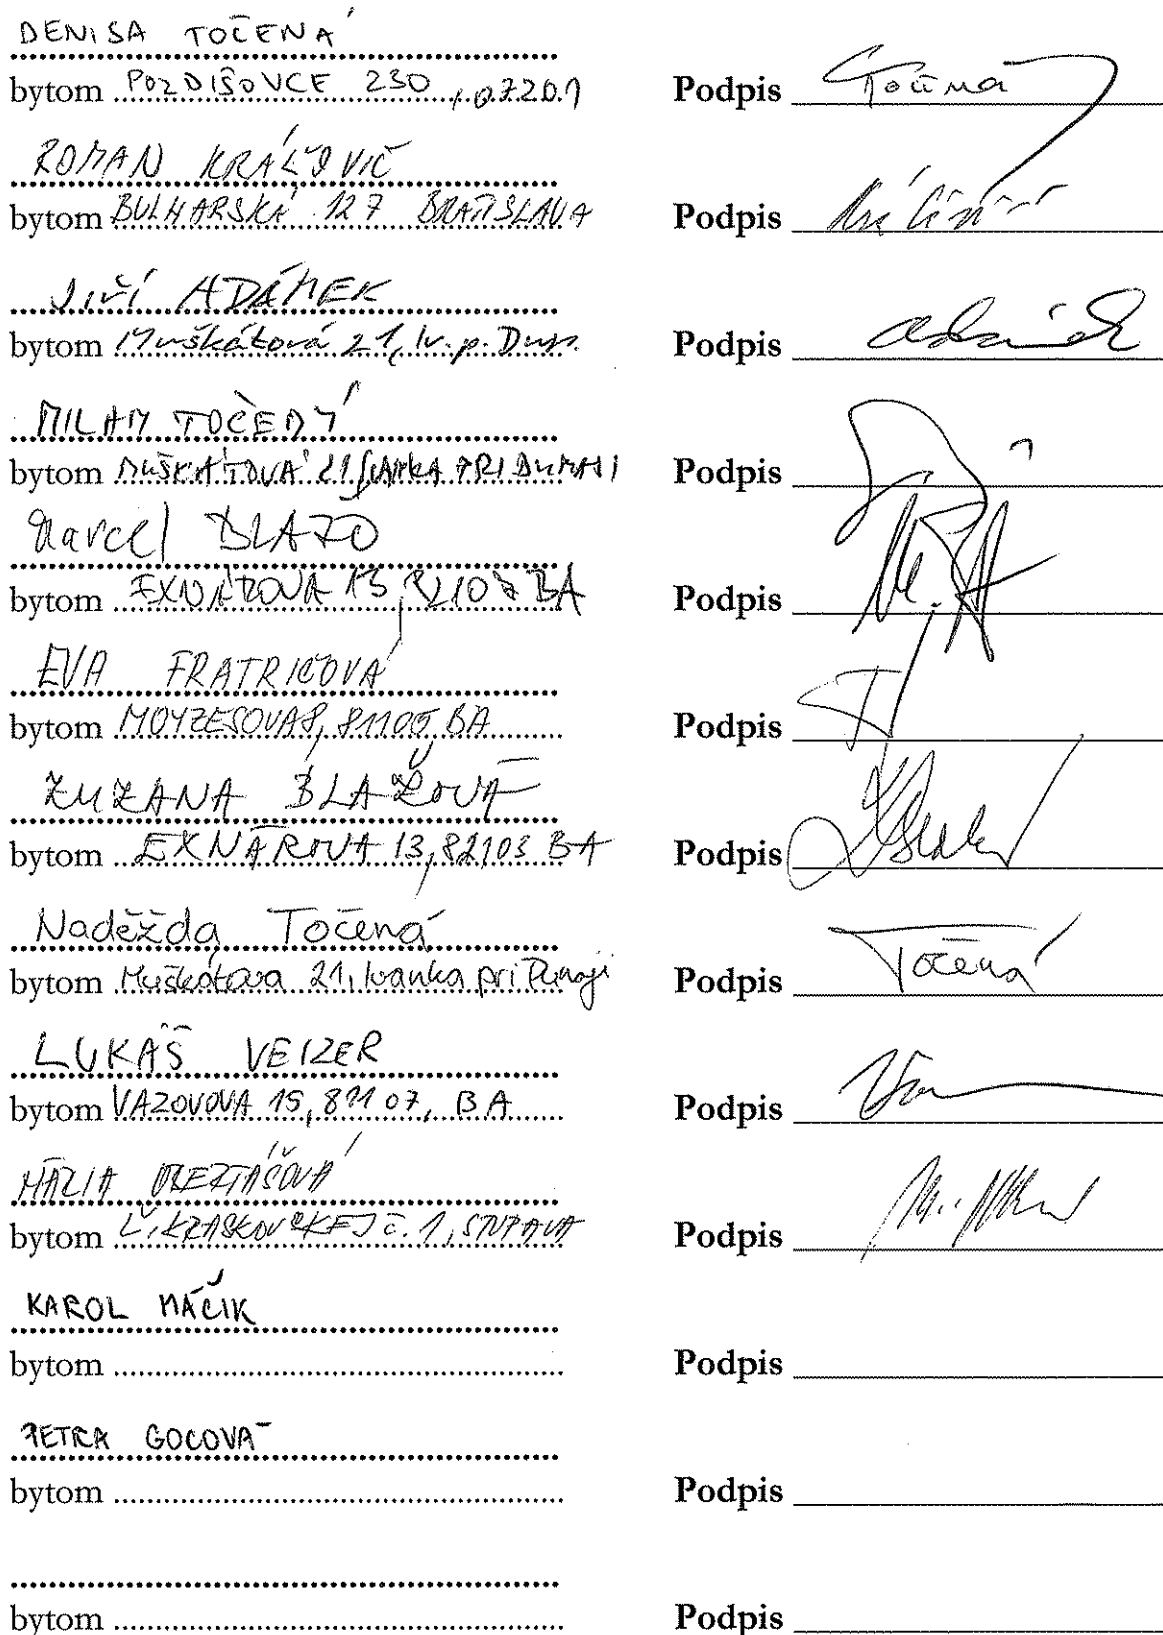 DENISA TOČENÁ
bytom POZDIŠOVCE 230, 07201 Podpis Točená
ROMAN KRÁĽOVIČ
bytom BULHARSKÁ 127 BRATISLAVA Podpis
JIŘÍ ADÁMEK
bytom Muškátová 21, Iv. p. Dun. Podpis Adámek
MILAN TOČENÝ
bytom MUŠKÁTOVÁ 21 IVANKA PRI DUNAJI Podpis
Marcel BLAŽO
bytom EXNÁROVA 13, 82103 BA Podpis
EVA FRATRIČOVÁ
bytom MOYZESOVA 8, 81105, BA Podpis
ZUZANA BLAŽOVÁ
bytom EXNÁROVA 13, 82103 BA Podpis
Naděžda Točená
bytom Muškátova 21, Ivanka pri Dunaji Podpis Točená
LUKÁŠ VEIZER
bytom VAZOVOVA 15, 811 07, BA Podpis
MÁRIA
bytom Č. 1, STUPAVA Podpis
KAROL MÁČIK
bytom Podpis
PETRA GOCOVÁ
bytom Podpis
bytom Podpis